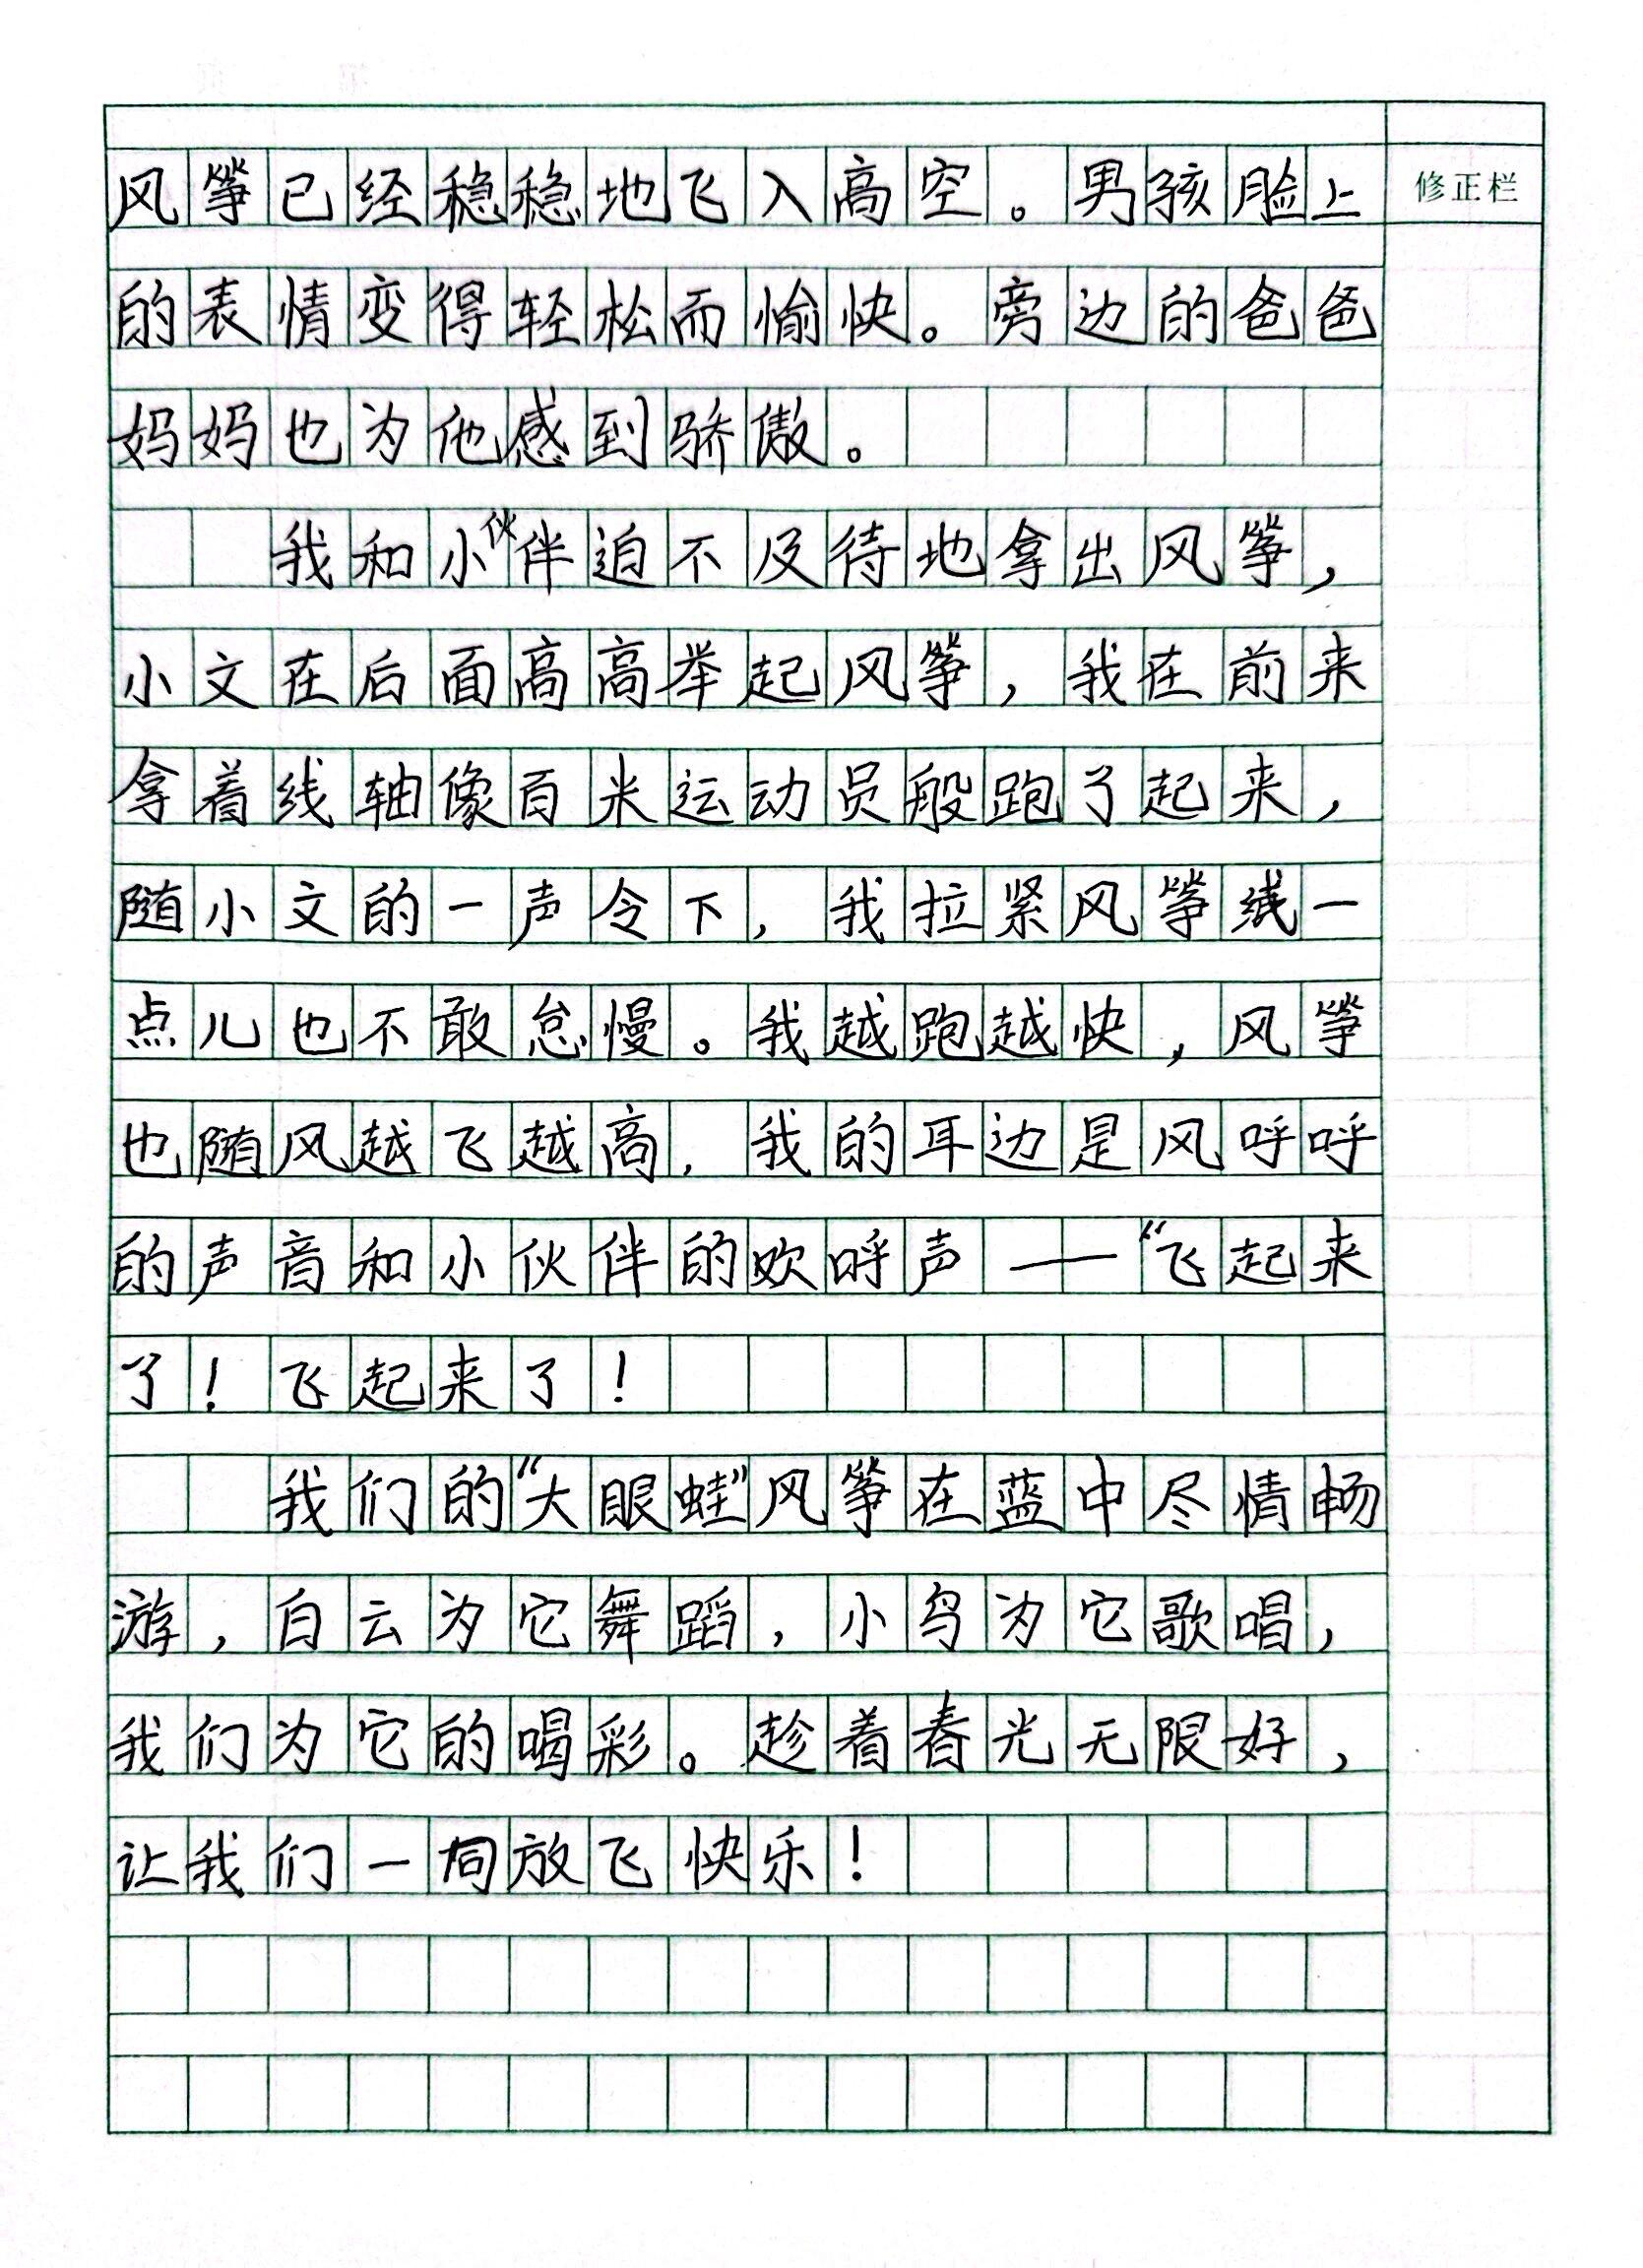 风筝已经稳稳地飞入高空。男孩脸上
修正栏
的表情变得轻松而愉快。旁边的爸爸
妈妈也为他感到骄傲。
我和小伙伴迫不及待地拿出风筝，
小文在后面高高举起风筝，我在前来
拿着线轴像百米运动员般跑了起来，
随小文的一声令下，我拉紧风筝线一
点儿也不敢怠慢。我越跑越快，风筝
也随风越飞越高，我的耳边是风呼呼
的声音和小伙伴的欢呼声——“飞起来
了！飞起来了！
我们的“大眼蛙”风筝在蓝中尽情畅
游，白云为它舞蹈，小鸟为它歌唱，
我们为它的喝彩。趁着春光无限好，
让我们一同放飞快乐！